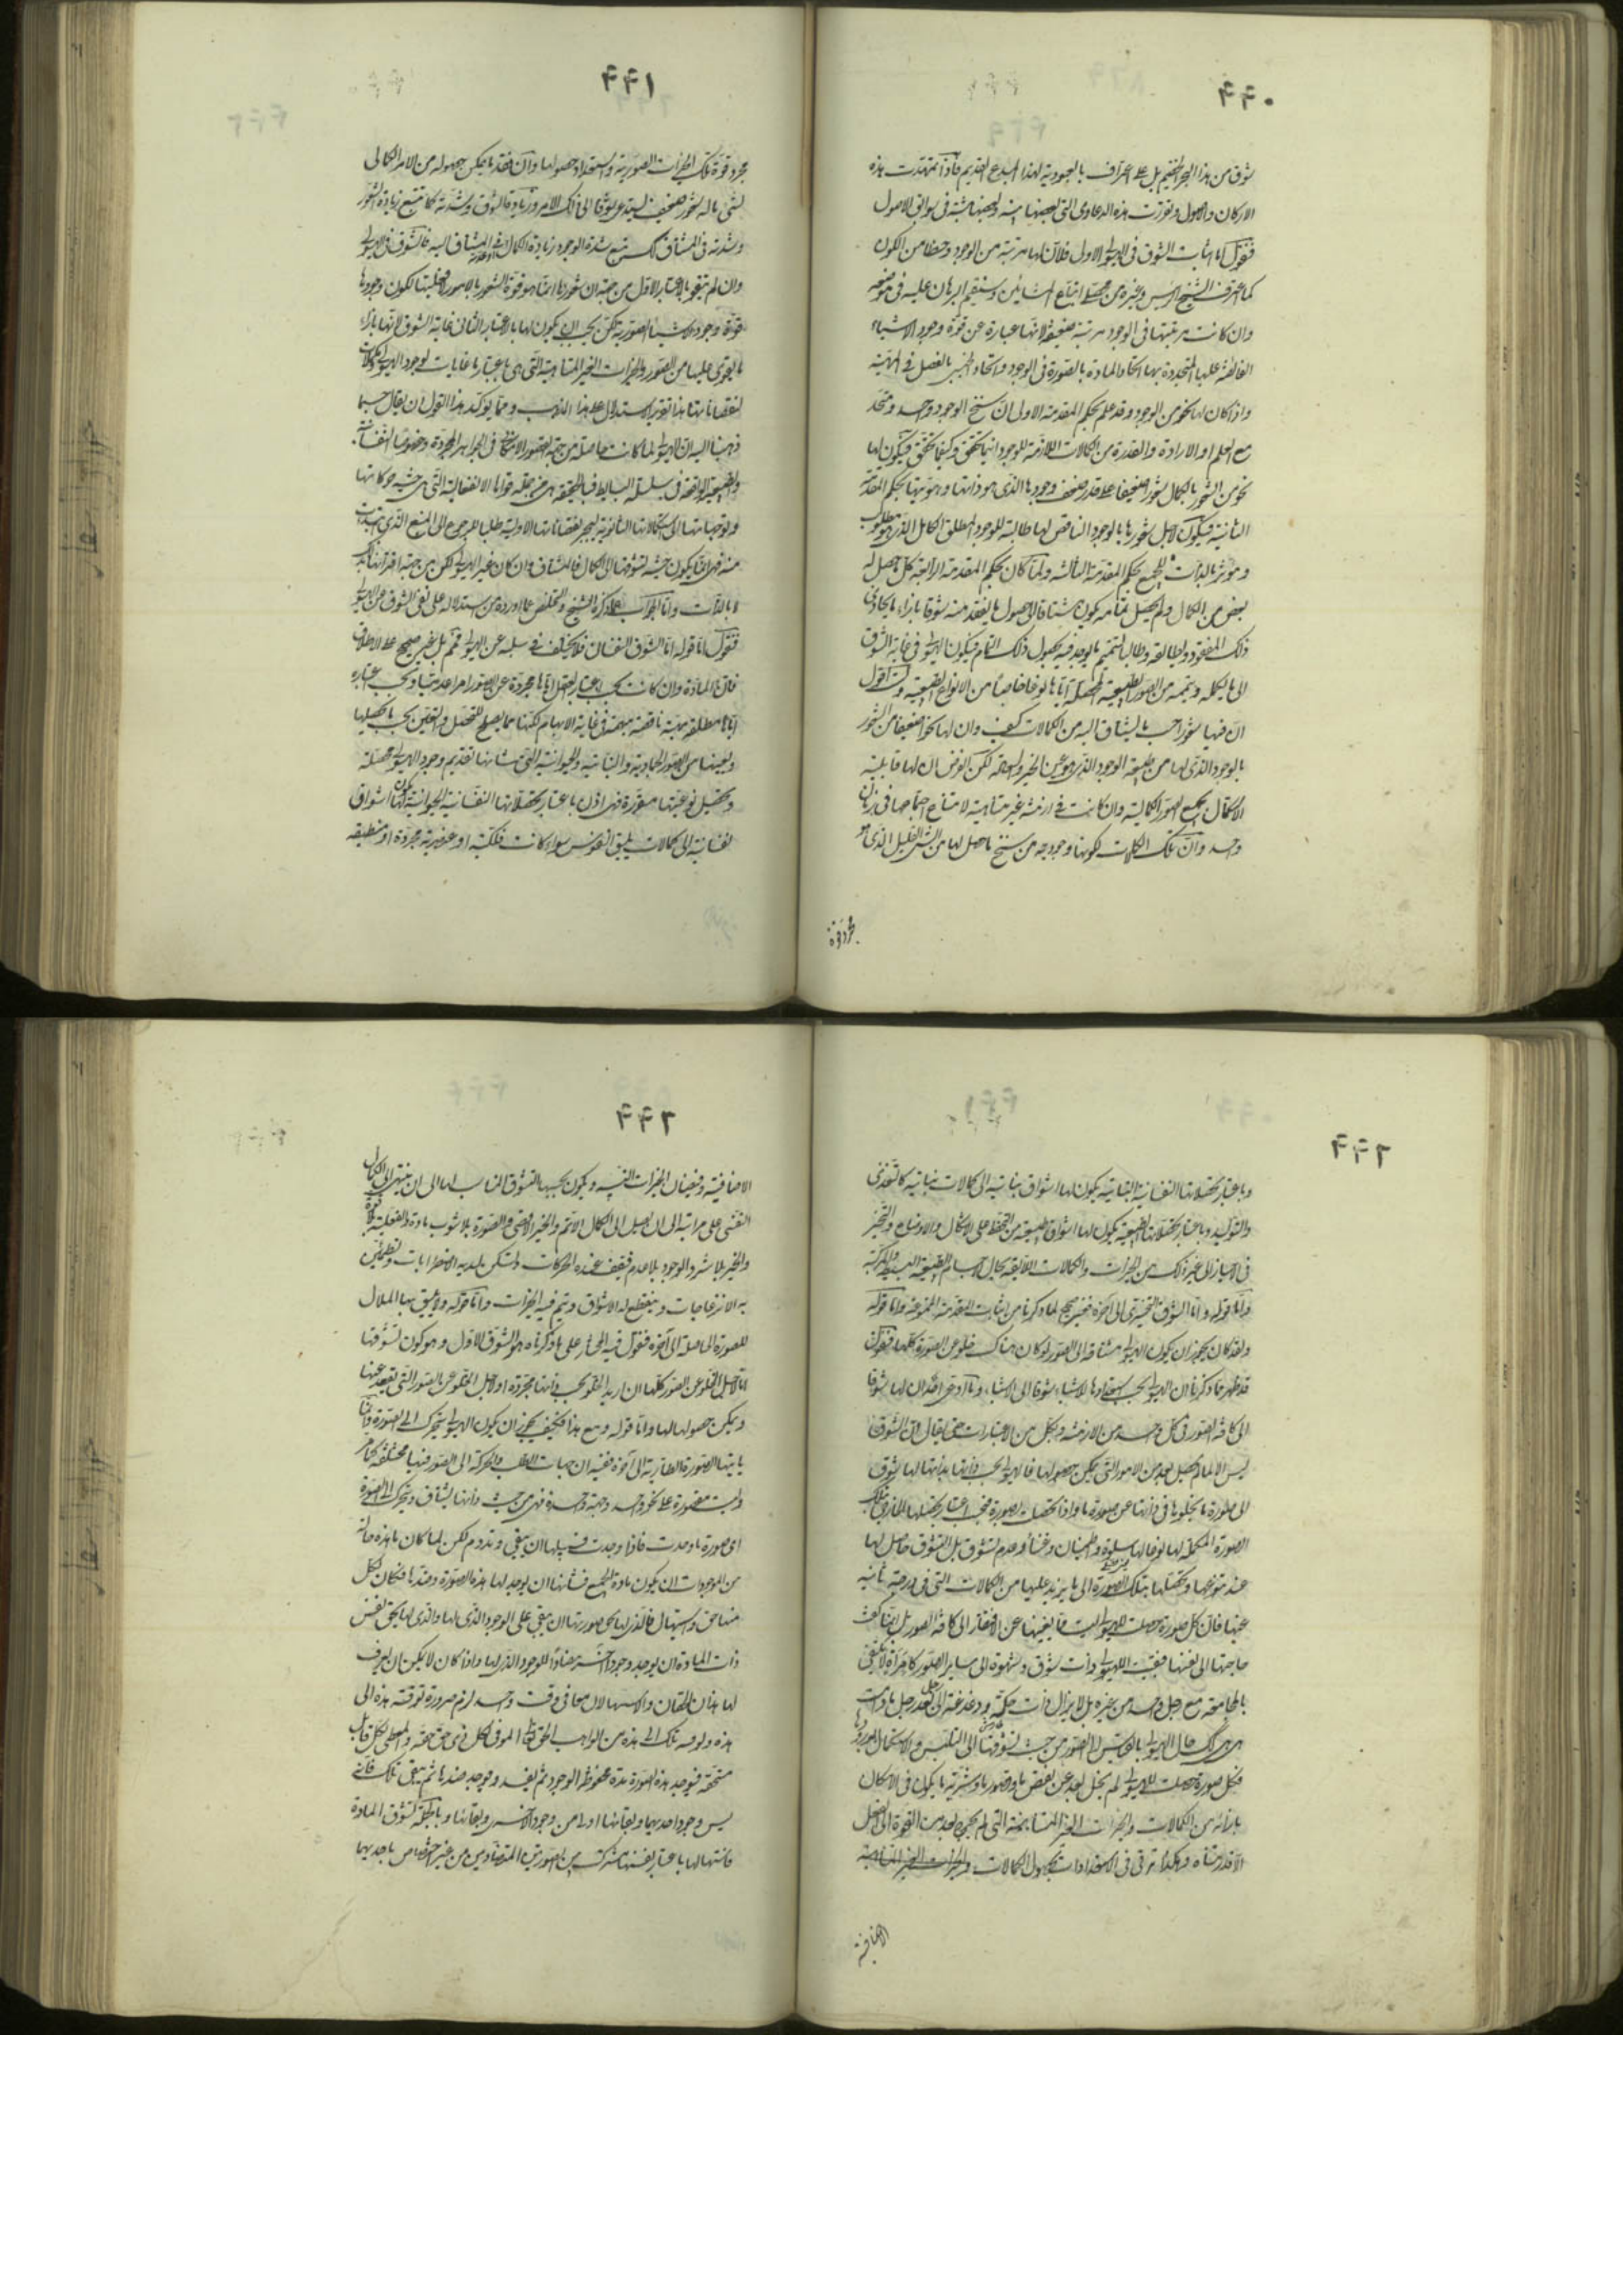 ۴۴۰
شوق من هذا البحر الخضيم بل على اعتراف بالعبودية لهذا المبدع القديم فاذا تمهدت هذه
الاركان والاصول وتقررت هذه الدعاوى التى بعضها بينة وبعضها مبينة فى سوابق الاصول
فنقول اما اثبات الشوق فى الهيولى الاولى فلان لها مرتبة من الوجود وحظا من الكون
كما اعترف الشيخ الرئيس وغيره من محصلى اتباع المشائين وسنقيم البرهان عليه فى موضعه
وان كانت مرتبتها فى الوجود مرتبة ضعيفة لانها عبارة عن قوة وجود الاشياء
الفائضة عليها المتحدة بها اتحاد المادة بالصورة فى الوجود واتحاد الجنس بالفصل فى المهية
واذا كان لها نحو من الوجود وقد علم بحكم المقدمة الاولى ان سنخ الوجود واحد ومتحد
مع العلم والارادة والقدرة من الكمالات اللازمة للوجود اينما تحقق وكيفما تحقق فيكون لها
نحو من الشعور بالكمال شعورا ضعيفا على قدر ضعف وجودها الذى هو ذاتها وهويتها بحكم المقدمة
الثانية فيكون لاجل شعورها بالوجود الناقص لها طالبة للوجود المطلق الكامل الذى هو مطلوب
ومؤثر بالذات للجميع بحكم المقدمة الثالثة ولما كان بحكم المقدمة الرابعة كل ما حصل له
بعض من الكمال ولم يحصل تمامه يكون مشتاقا الى حصول ما يفقد منه شوقا بازاء ما يحاذى
ذلك المفقود ويطابقه وطالبا لتتميم ما يوجد فيه بحصول ذلك التمام فيكون الهيولى فى غاية الشوق
الى ما يكمله ويتممه من الصور الطبيعية المحصلة اياها نوعا خاصا من الانواع الطبيعية ولست اقول
ان فيها شعورا بحسب ما يشتاق اليه من الكمالات كيف وان لها نحوا ضعيفا من الشعور
بالوجود الذى لها من طبيعة الوجود الذى هو عين الخير والبهجة لكن الغرض ان لها قابلية
الاكتمال بجميع الصور الكمالية وان كانت فى ازمنة غير متناهية لامتناع اجتماعها فى زمان
واحد وان تلك الكمالات لكونها وجودية من سنخ ما حصل لها من الشىء القليل الذى هو
مجرد قوة
۴۴۱
مجرد قوة تلك الخيرات الصورية واستعداد حصولها وان فقد ما يمكن حصوله من الامر الكمالى
لشىء ماله شعور ضعيف يستدعى شوقا الى ذلك الامر وزيادة الشوق وشدته كما تتبع زيادة الشعور
وشدته فى المشتاق كك تتبع شدة الوجود وزيادة الكمال فى المشتاق اليه فالشوق فى الهيولى
وان لم يتقو بالاعتبار الاول من جهة ان شعورها انما هو قوة الشعور بالامور وقبليتها لكون وجودها
قوة وجود الاشياء الصورية لكن يجب ان يكون لها بالاعتبار الثانى غاية الشوق لانها بازاء
ما يقوى عليها من الصور والخيرات الغير المتناهية التى هى باعتبار ما غايات لوجود الهيولى وكمالات
لنقصاناتها هذا تقرير الاستدلال على هذا المذهب ومما يؤكد هذا القول ان يقال حسبما
ذهبنا اليه ان الهيولى لما كانت حاصلة من جهة القصور الامكانى فى الجواهر المجردة وخصوصا النفسانية
والطبيعية الواقعة فى سلسلة البسايط فبالحقيقة هى من جملة قواها الانفعالية التى هى حيثية حركاتها
وتوجهاتها الى استكمالاتها الثانوية ليجبر نقصاناتها الاولية طلبا للرجوع الى المنبع الذى ابتدات
منه فهى انما يكون حيثية تشوقها الى الكمال فالمشتاق وان كان غير الهيولى لكن من جهة اقترانها بتلك
لا بالذات واما الجواب عما ذكره الشيخ والتخلص عما اورده من استدلاله على نفى الشوق عن الهيولى
فنقول اما قوله اما الشوق النفسانى فلا يختلف فى سلبه عن الهيولى فمم بل غير صحيح على الاطلاق
فان المادة وان كانت بحسب اعتبار العقل اياها مجردة عن الصور امرا عدميا وبحسب اعتباره
اياها مطلقة مهية ناقصة مبهمة فى غاية الابهام لكنها مما يصلح للتحصل والتعين بحسب ما يحصلها
ويعينها من الصور الجمادية والنباتية والحيوانية التى من شانها تقديم وجود الهيولى محصلة
وتحصيل نوعيتها مقررة فهى اذن باعتبار تحصلاتها النفسانية الحيوانية يكون لها اشواق
نفسانية الى كمالات يليق النفوس سواء كانت فلكية او عنصرية مجردة او منطبعة
۴۴۲
وباعتبار تحصلاتها النفسانية النباتية يكون لها اشواق نباتية الى كمالات نباتية كالتغذى
والتوليد وباعتبار تحصلاتها الطبيعية يكون لها اشواق طبيعية من التحفظ على الاشكال والاوضاع والتحيز
فى الاحياز الى غير ذلك من الخيرات والكمالات اللائقة بحال الاجسام الطبيعية البسيطة والمركبة
واما قوله واما الشوق التسخيرى الى اخره فغير صحيح لما ذكرنا من اثبات المقدمة الممنوعة واما قوله
ولقد كان يجوز ان يكون الهيولى مشتاقة الى الصور لو كان هناك خلو عن الصورة كلها فنقول
قد ظهر مما ذكرنا ان الهيولى بحسب استعدادها للاشياء شوقا الى الاشياء وما ادعى احد ان لها شوقا
الى كافة الصور فى كل واحد من الازمنة وبكل من الاعتبارات حتى يقال ان الشوق
ليس الا لما لم يحصل بعد من الامور التى يمكن حصولها فالهيولى بحسب ذاتها بذاتها لها شوق
الى صورة ما يخلو ما فى ذاتها عن صورة ما واذا تحصلت بصورة فبحسب اعتبار تحصلها الخارجى بتلك
الصورة المكملة لها نوعا لها سلوة واطمينان وغناء وعدم تشوق بل التشوق حاصل لها
عند تنوعها وتحصلها بتلك الصورة الى ما يزيد عليها من الكمالات التى فى درجة ثانية
عنها فان كل صورة حصلت للهيولى ليست مما يغنيها عن الافتقار الى كافة الصور بل انما كفت
حاجتها الى نفسها فبقيت الهيولى ذات شوق وشهوة الى ساير الصور كامراة لا تكتفى
بالمجامعة مع رجل واحد من غيره بل لا يزال ذات حكة ودغدغة الى رجل بعد رجل ما دامت
هى هى كك حال الهيولى بالقياس الى الصور من حيث تشوقها الى التلبس والاستكمال بورودها
فكل صورة حصلت للهيولى لم يخل بعد عن نقص ما وقصور ما وشرية ما يكون فى الامكان
بازائه من الكمالات والخيرات الغير المتناهية التى لم يخرج بعد من القوة الى الفعل
الا قدر متناه وهكذا ترقى فى الاستعدادات لحصول الكمالات والخيرات الغير المتناهية
الاضافية
۴۴۲
الاضافية وفيضان الخيرات النسبية ويكون بحسبها التشوق المناسب لها الى ان ينتهى الى الكمال
النفسى على مراتبه الى ان يصل الى الكمال الاتم والخير الاقصى والصورة بلا شوب مادة والفعلية بلا قوة
والخير بلا شر والوجود بلا عدم فتقف عنده الحركات وتسكن لديه الاضطرابات وتطمئن
به الانزعاجات وينقطع له الاشواق ويتم فيه الخيرات واما قوله ولا يليق بها الملال
للصورة الحاصلة الى آخره فنقول فيه المختار على ما ذكرناه هو الشق الاول وهو كون تشوقها
اما لاجل الخلو عن الصور كلها ان اريد الخلو بحسب ذاتها مجردة او لاجل الخلو عن الصور التى تفقد عنها
ويمكن حصولها لها واما قوله ومع هذا فكيف يجوز ان يكون الهيولى يتحرك الى الصورة وانما
ياتيها الصورة الطارية الى آخره ففيه ان جهات الطلب والحركة الى الصور فيها مختلفة كما مر
وليست مقصورة على نحو واحد وجهة واحدة فهى من حيث ذاتها يشتاق ويتحرك الى الصورة
اى صورة ما وجدت فاذا وجدت فسبيلها ان يبقى ويدوم لكن لما كان ما هذه حاله
من الموجودات ان يكون مادة الجميع فشانها ان يوجد لها هذه الصورة وضدها فكان لكل
منها حق واستيهال فالذى لها بحق صورتها ان يبقى على الوجود الذى لها والذى لها بحق نفس
ذات المادة ان يوجد وجودا اخر مضادا للوجود الذى لها واذا كان لا يمكن ان يعرف
لها هذان الحقان والاستيهالان معا فى وقت واحد لزم ضرورة توقيته هذه الى
هذه ولوقيه تلك الى هذه من الواهب الحق الموفى لكل ذى حق حقه والمعطى لكل قابل
مستحقه فيوجد هذه الصورة مدة محفوظة الوجود ثم يفسد ويوجد ضدها ثم يبقى تلك فانه
ليس وجود احديهما وبقائها اولى من وجود الاخرى وبقائها وبالجملة تشوق المادة
فانها لها باعتبار نفسها مشترك بين الصورتين المتضادتين من غير اختصاص باحديهما